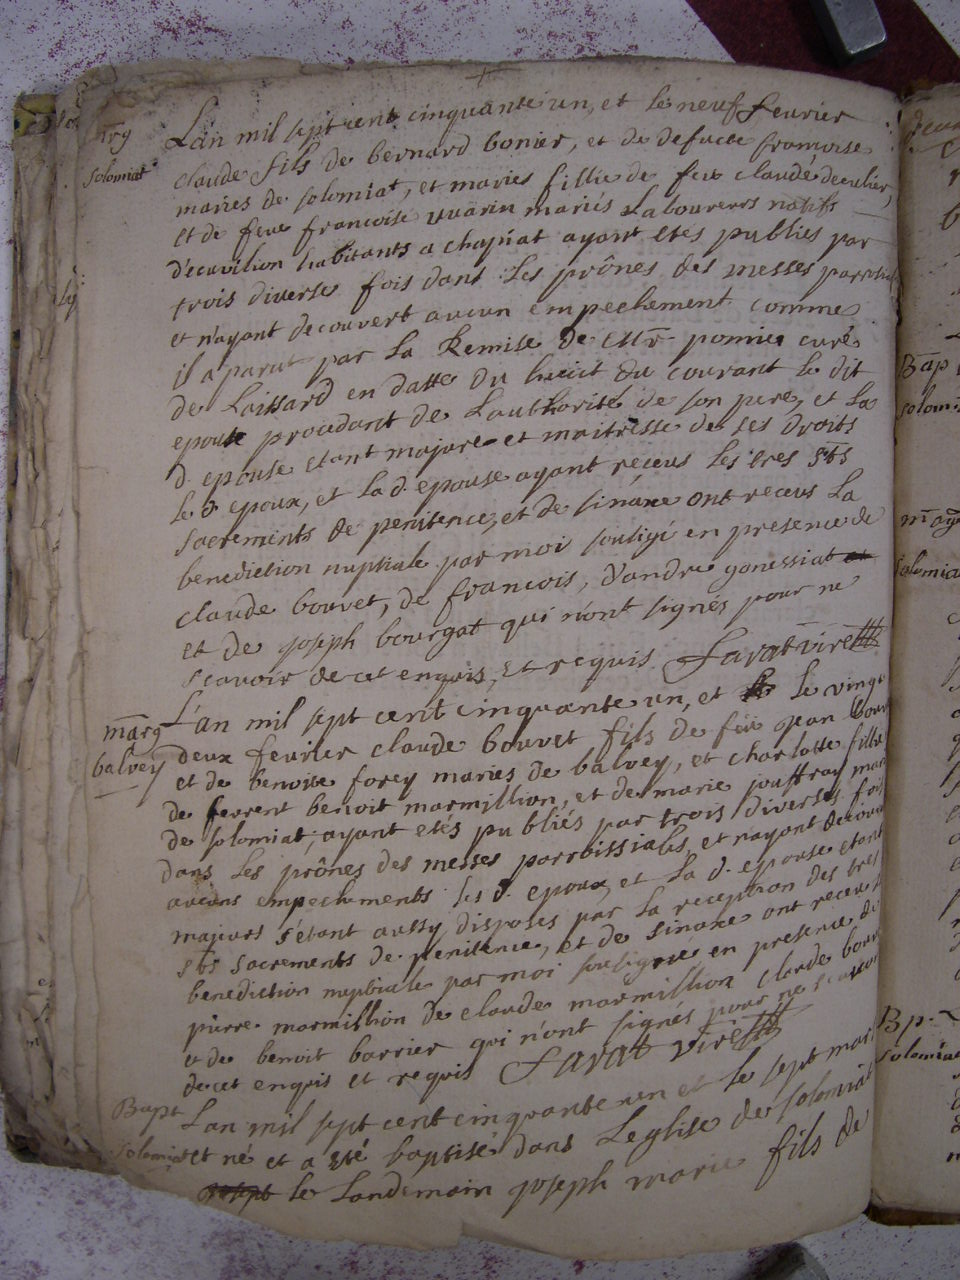 marg
Solomiat
L'an mil sept cent cinquante un, et le neuf fevrier
claude fils de bernard bonier, et de defucte françoise
maries de solomiat, et maries fillie de feu claude decuvlier
et de feue francoise vuarin mariés Laboureurs natifs
d'ecuvilion habitants a chapñat ayant etés publiés par
trois diverses fois dans les prônes des messes parroissial
et n'ayant decouvert aucun empechement comme
il aparut par la Remise de Mr ponnier curé
de Laissard en datte du hucit du courant le dit
epoux procedant de L'authorité de son pere, et la
d. epouse etant majore et maitresse de ses Droits
le d epoux, et la d. epouse ayant receus les tres sts
sacrements de penitence, et de sinaxe ont receus La
benediction nuptiale par moi souligé en presence de
claude bouvet, de francois, d'andre gonessiat
et de joseph bourgat qui n'ont signés pour ne
scavoir de cet enquis, et requis. Savarvire
marg
balvey
L'an mil sept cent cinquante un, et le vingt
deux fevrier claude bouvet fils de feu jean bouv
et de benoite forey maries de balvey, et charlotte fillie
de fevrent benoit marmillion, et de marie jouffray mar
de solomiat, ayant etés publiés par trois diverses fois
dans les prônes des messes parroissiales, et nayant decouv
aucuns empechements les d. epoux, et la d. epouse etant
majeurs s'etant aussy disposes par la reception des tres
sts sacrements de penitence, et de sinaxe ont receus l
benediction nuptiale par moi sousigné en presence de
pierre marmillion de claude marmillion claude bouv
et de benoit barrier qui n'ont signés pour ne scavoir
de cet enquis et requis Savarvire
Bapt
Solomiat
L'an mil sept cent cinquante un et le sept mar
et né et a eté baptisé dans L'eglise de solomiat
le Landemain joseph marie fils de
Bap
solom
mag
solomia
Bp.
solomia